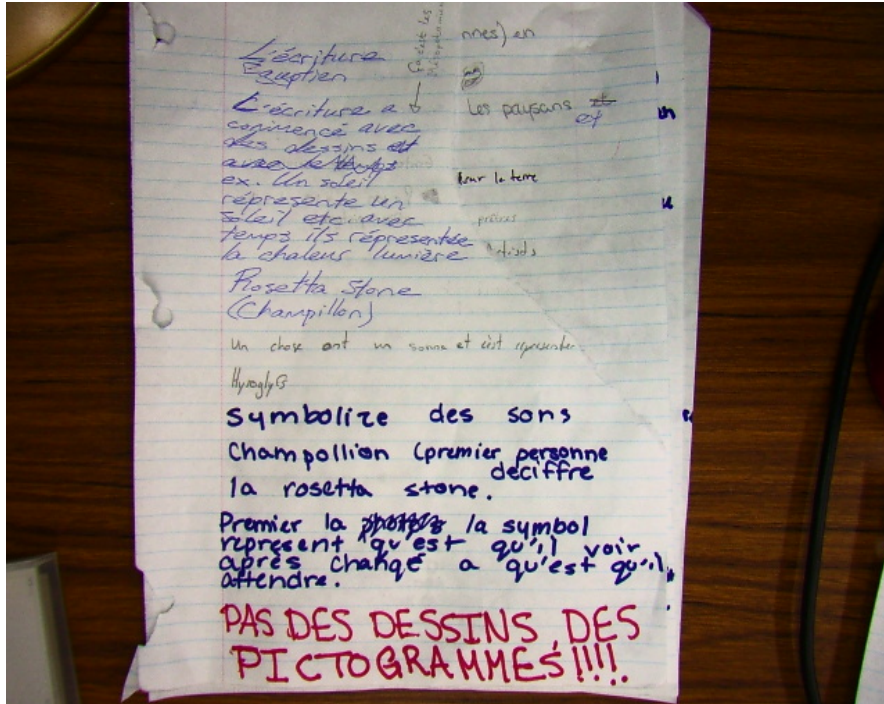 nnes) en
L'écriture
Égyptien
Les paysans et
et
L'écriture a
commencé avec
des dessins et
avec le temps
ex. Un soleil
Pour la terre
répresente un
soleil etc. avec
prêtres
temps ils répresentée
Artists
la chaleur lumière
Rosetta Stone
(Champillon)
Un chose ont un sonne et c'est representer.
Hyroglyβ
symbolize des sons
Champollion (premier personne
deciffre
la rosetta stone.
Premier la la symbol
represent qu'est qu'il voir
après changé a qu'est qu'il
attendre.
PAS DES DESSINS, DES
PICTOGRAMMES!!!!